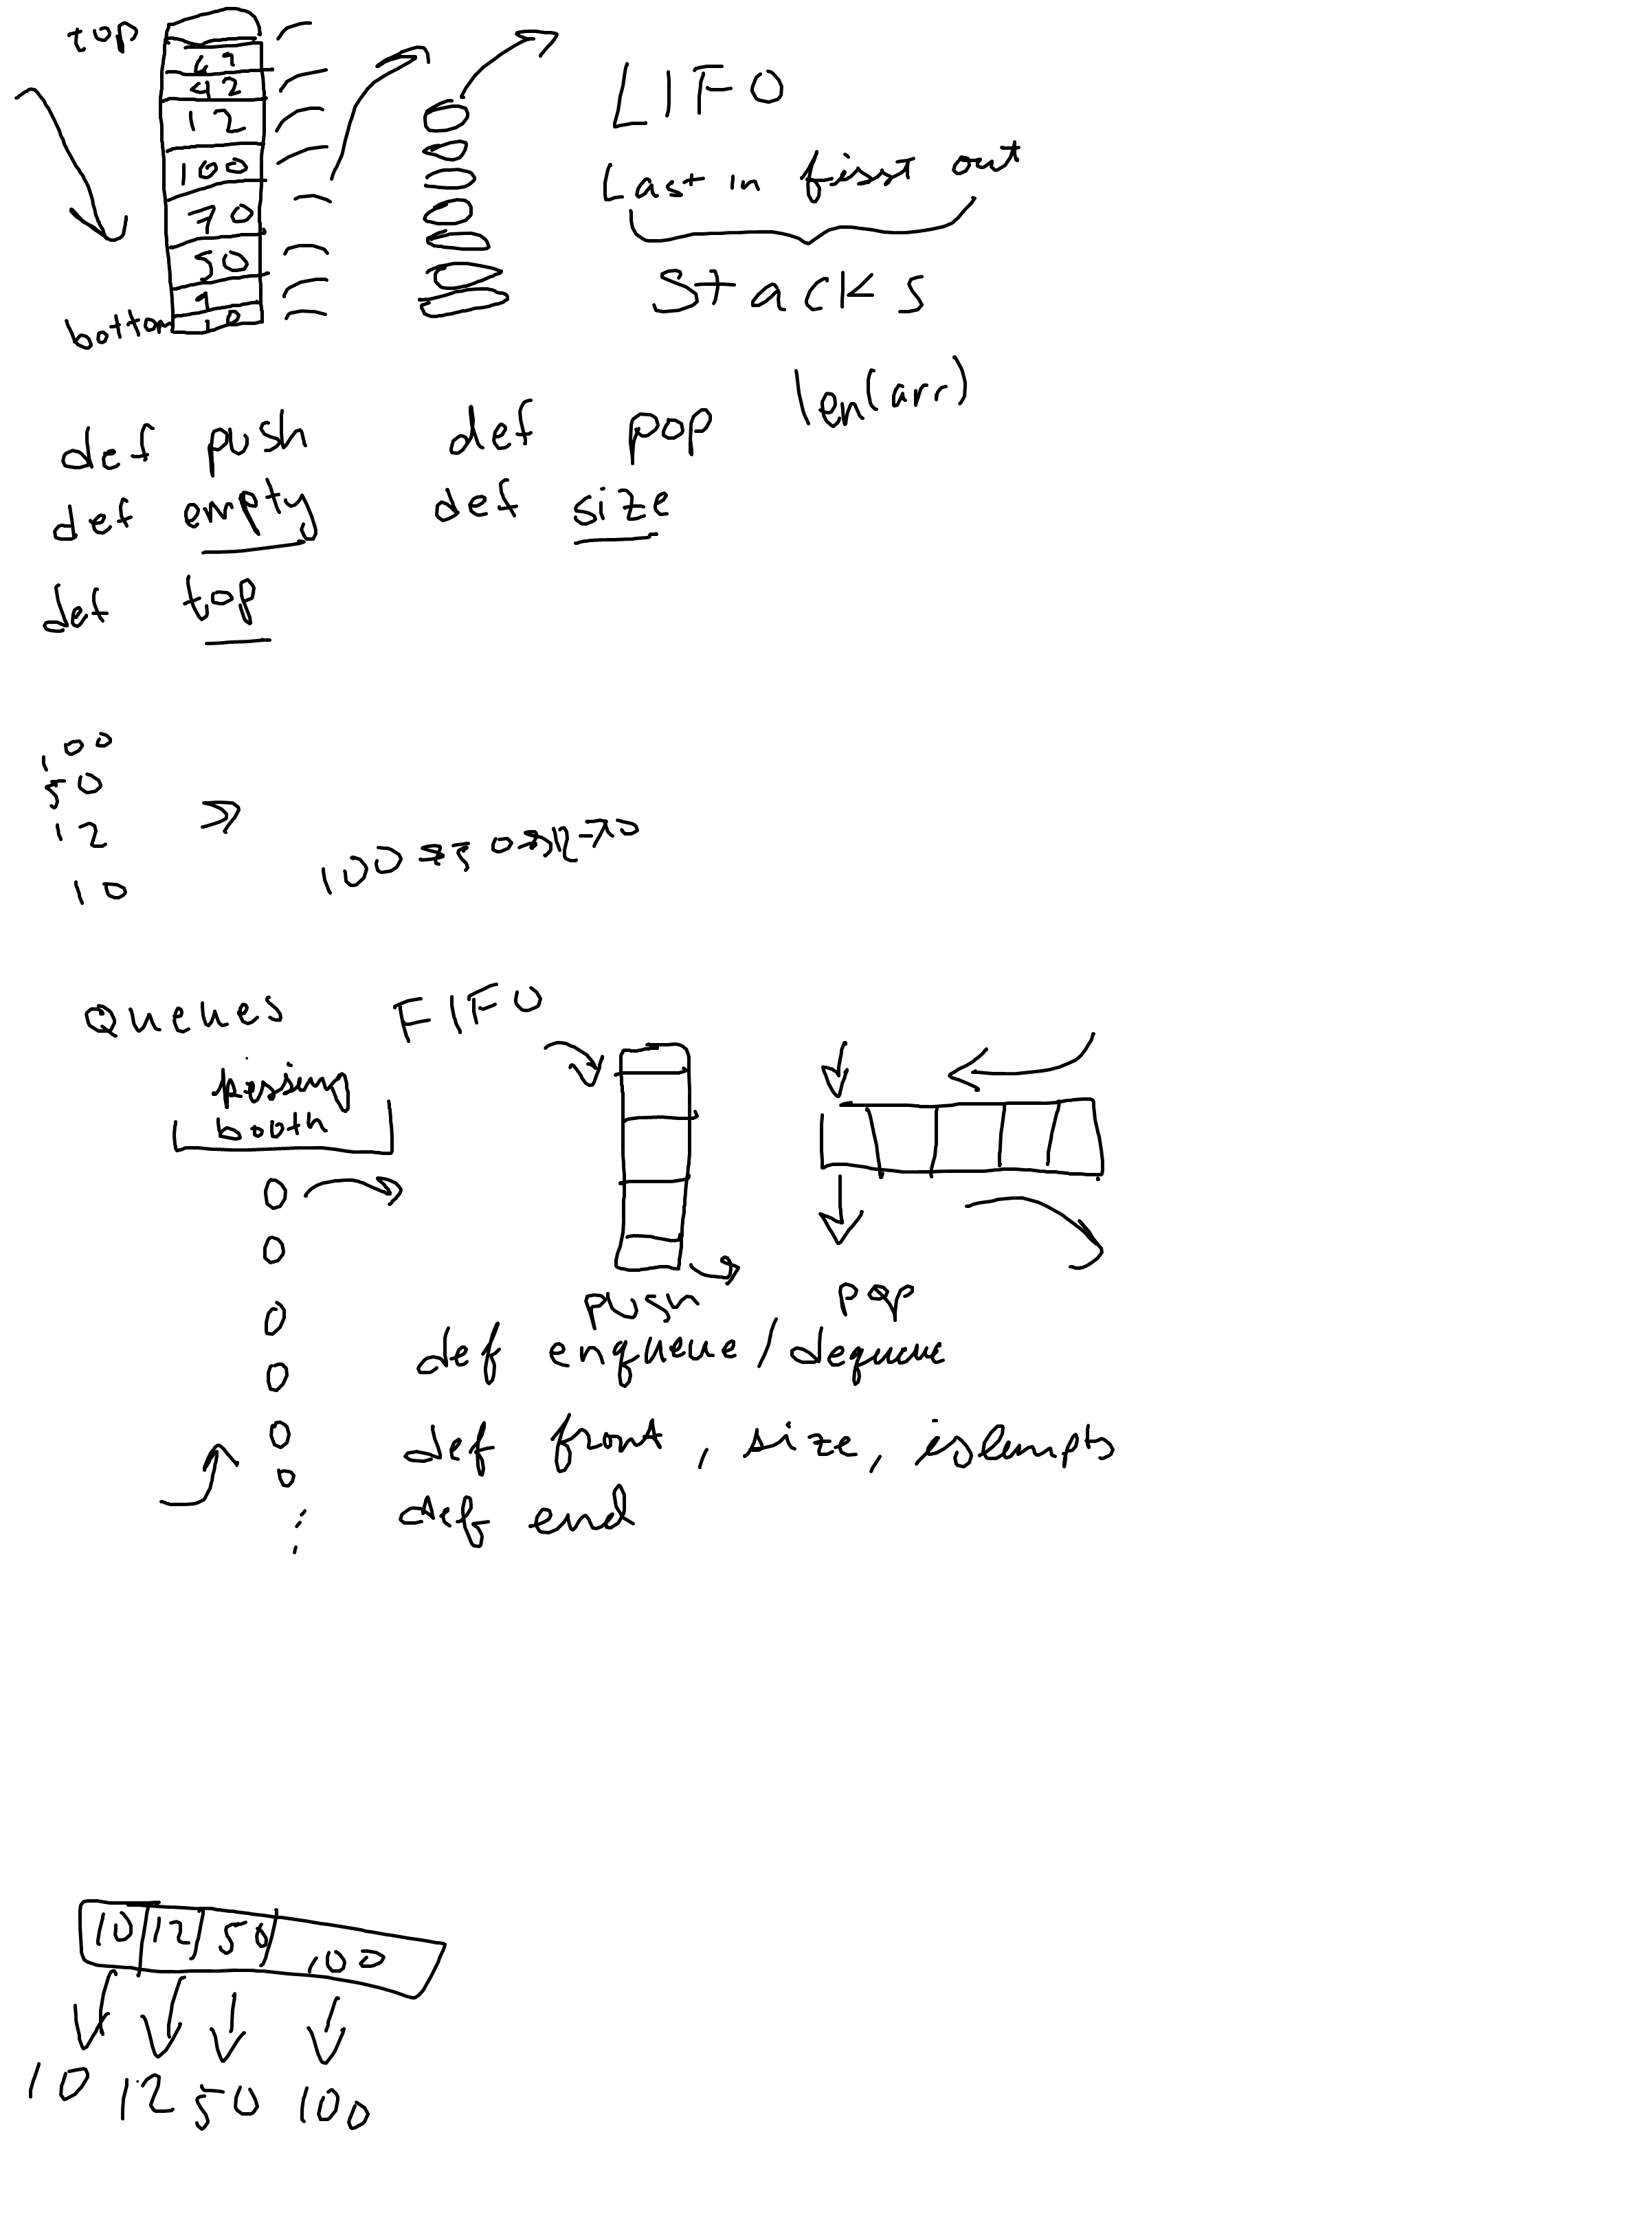 top
42
12
100
70
50
1
10
bottom
LIFO
Last in first out
Stacks
def push def pop len(arr)
def empty def size
def top
100
50
12
10
100 → 50 → 12 → 10
Queues FIFO
booth
push pop
def enqueue / dequeue
def front, size, isEmpty
def end
10 12 50 100
10 12 50 100